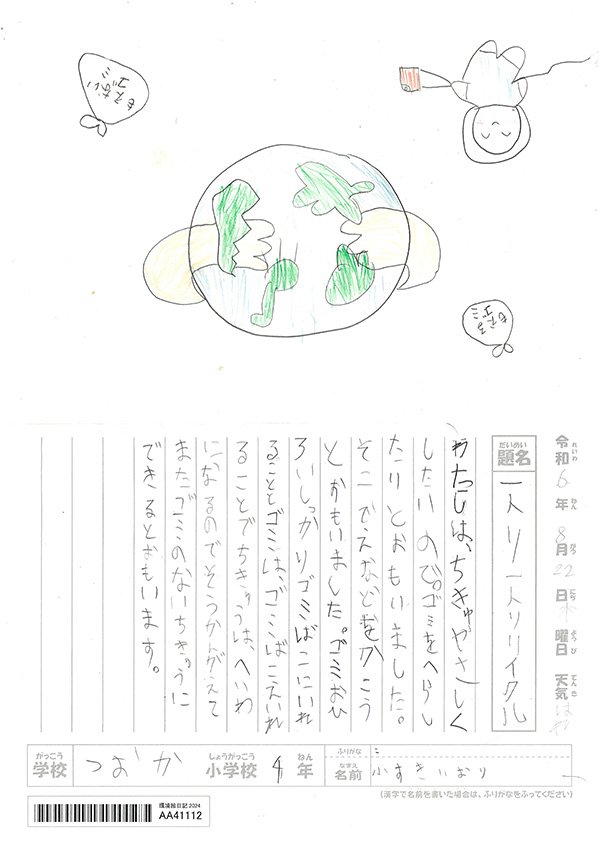 もえない
ゴミ
もえる
ゴミ
令和6年8月22日木曜日 天気はれ
れいわ ねん がつ にち ようび てんき
だいめい
題名
一人リ一人リサイクル
わたしは、ちきゅやさしく
したいので。ゴミをへらし
たりとおもいました。
そこでえなどをかこう
とおもいました。ゴミおひ
ろいしっかりゴミばこにいれ
ることとゴミは、ゴミばこえいれ
ることでちきゅうは、へいわ
になるのでそうかんがえて
またゴミのないちきゅうに
できるとおもいます。
がっこう
学校
しょうがっこう
小学校
4
ねん
年
ふりがな
こ
なまえ
名前
小すきいおり
(漢字で名前を書いた場合は、ふりがなをふってください)
環境絵日記2024
AA41112